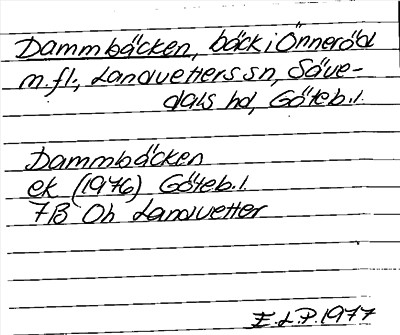 Dammbäcken, bäck i Önneröd
m.fl., Landvetters sn, Säve-
dals hd, Göteb.l.
Dammbäcken
ek (1976) Göteb.l.
7B Oh Landvetter
E.L.P. 1977